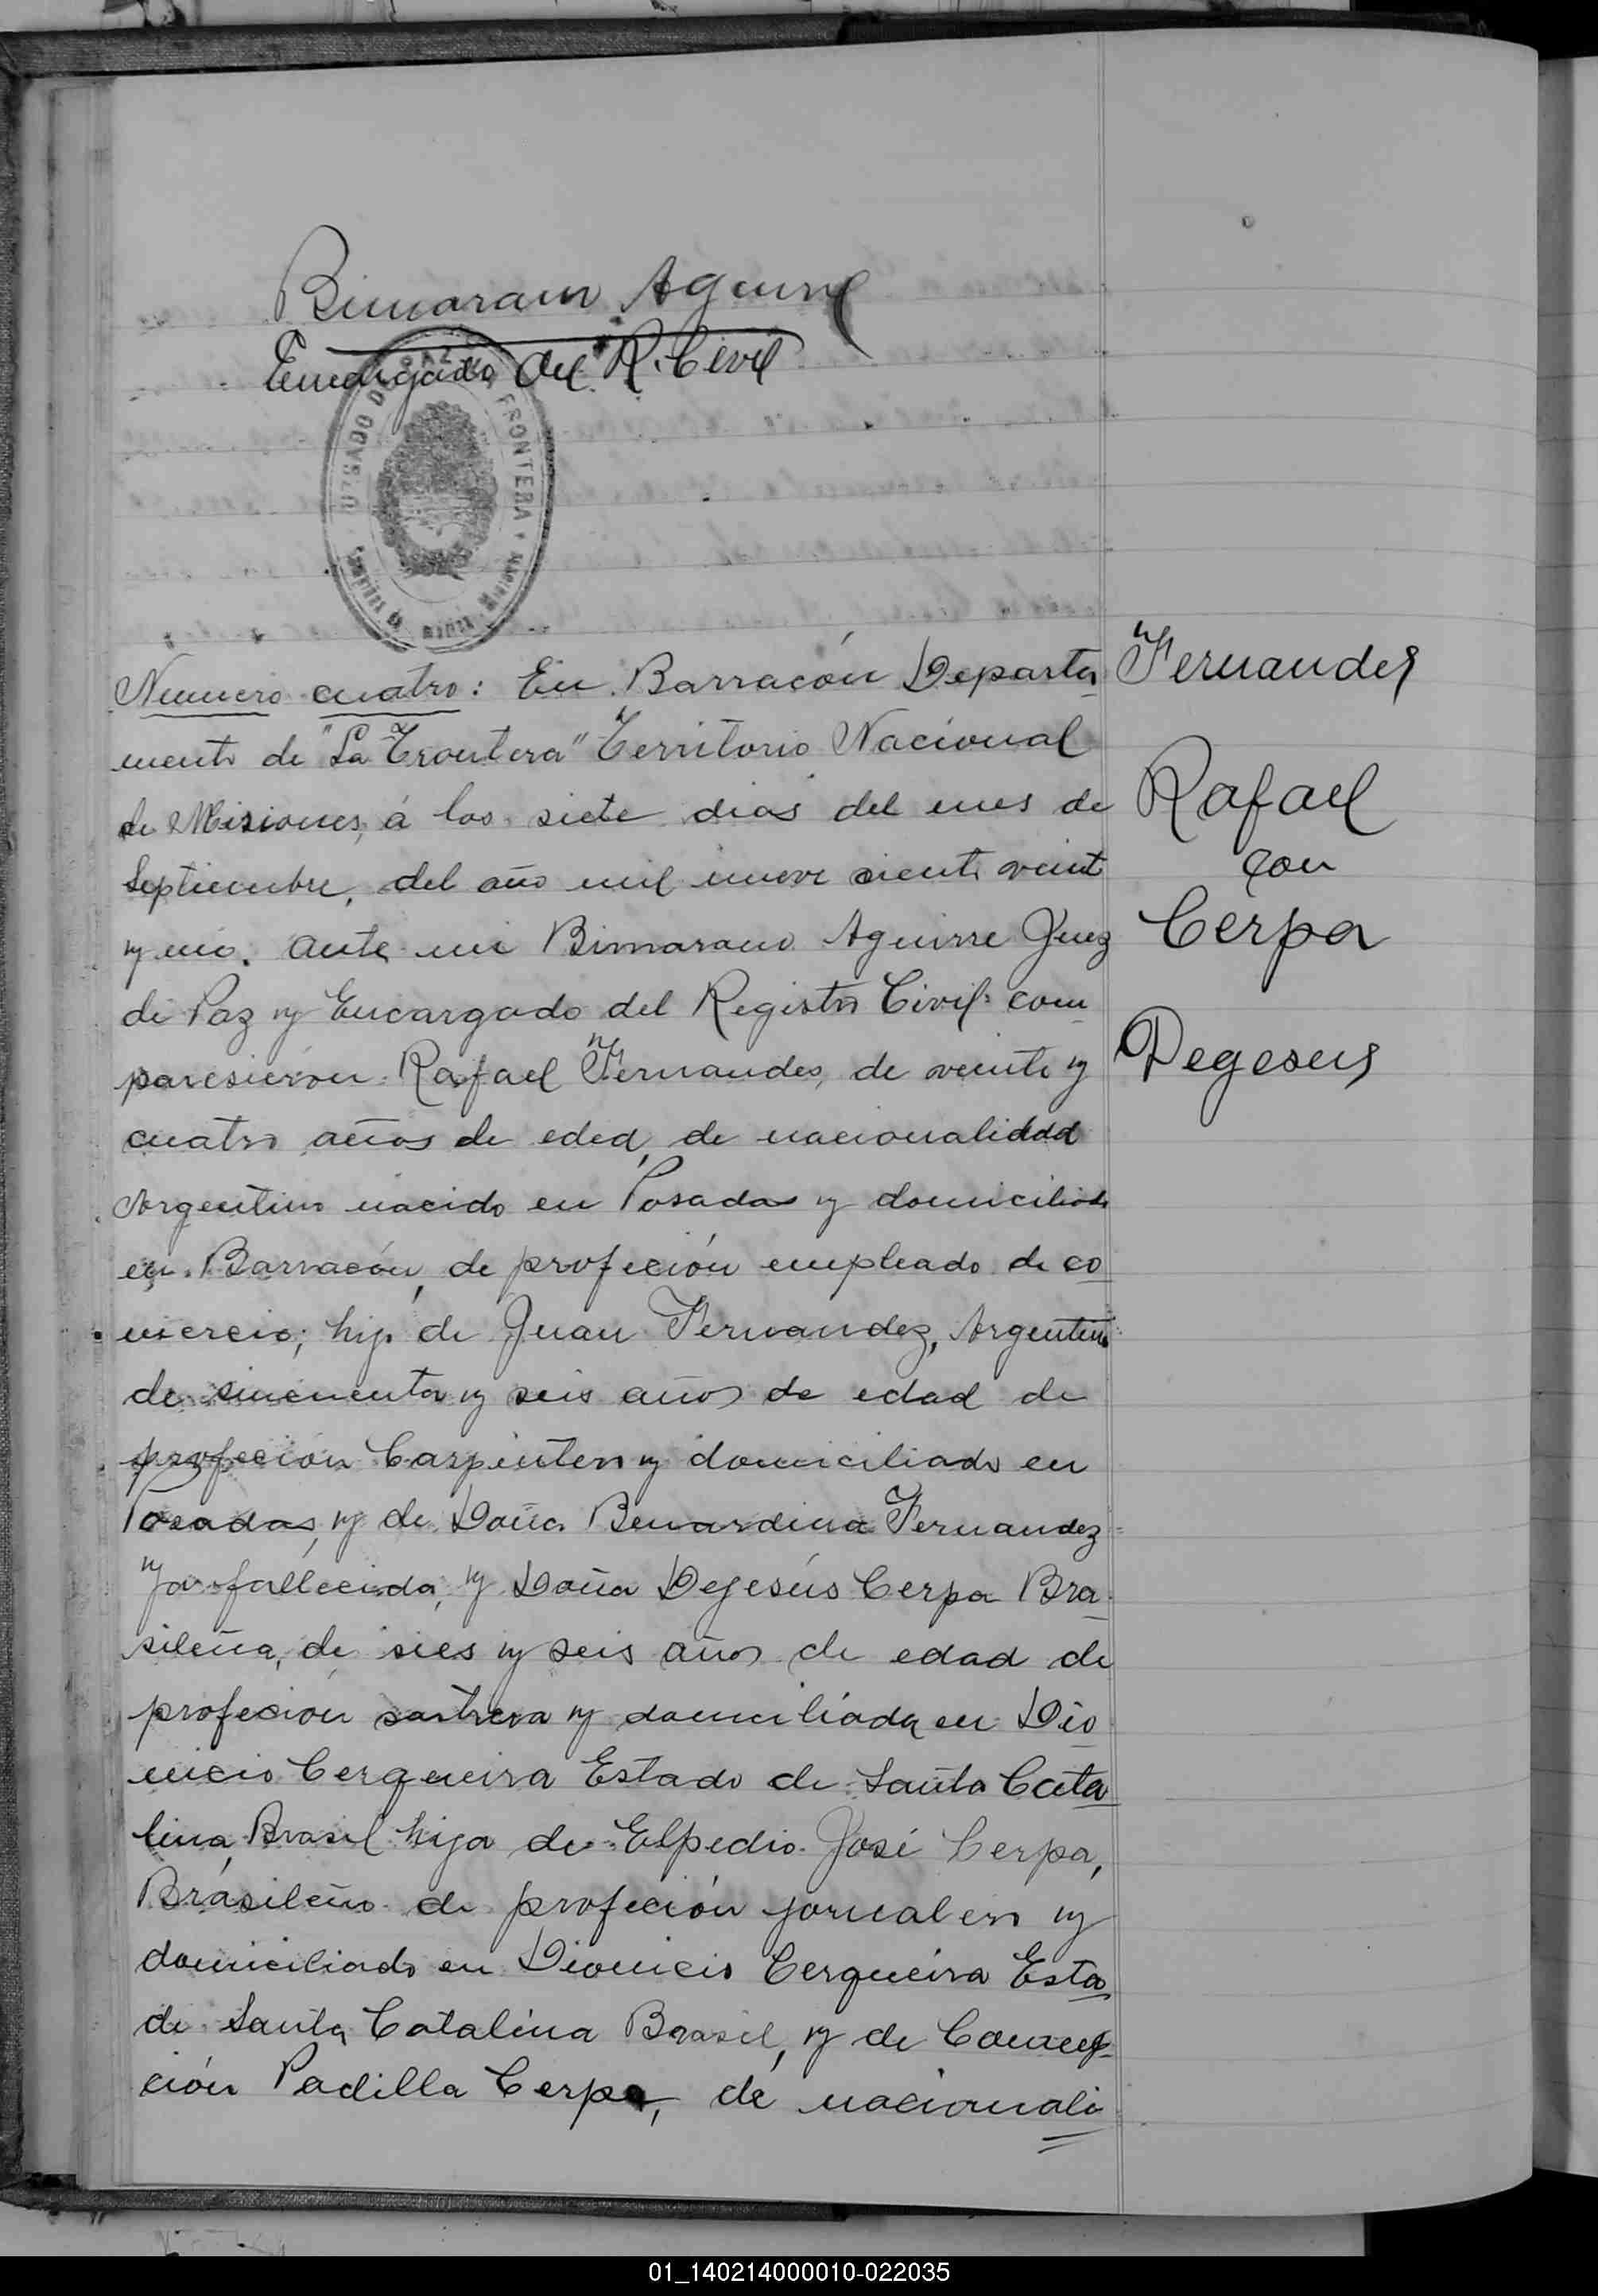 Bimarain Aguirre
Encargado del R. Civil
JUZGADO DE PAZ FRONTERA
Numero cuatro: En Barracón Departa
mento de "La Frontera" Territorio Nacional
de Misiones, á los siete dias del mes de
Septiembre, del año mil nueve ciento veint
y uno. ante mi Bimarano Aguirre Juez
de Paz y Encargado del Registro Civil: com
paresieron Rafael Fernandes, de veinte y
cuatro años de eded, de nacionalidad
Argentino nacido en Posadas y domiciliado
en Barracón, de profeción empleado de co
mercio; hijo de Juan Fernandez, Argentino
de sincuenta y seis años de edad de
profeción Carpintero y domiciliado en
Posadas, y de Doña Benardina Fernandez
ya fallecida, y Doña Dejesús Cerpa Bra
sileña, de sies y seis años de edad de
profecion sastrera y domiciliada en Dio
nicio Cerqueira Estado de Santa Cata
lina, Brasil hija de Elpedio José Cerpa,
Brásileño de profeción jornalero y
domiciliado en Dionicio Cerqueira Esta
de Santa Catalina Brasil, y de Concep
ción Padilla Cerpa, de nacionali
Fernandez
Rafael
con
Cerpa
Degesus
01_140214000010-022035